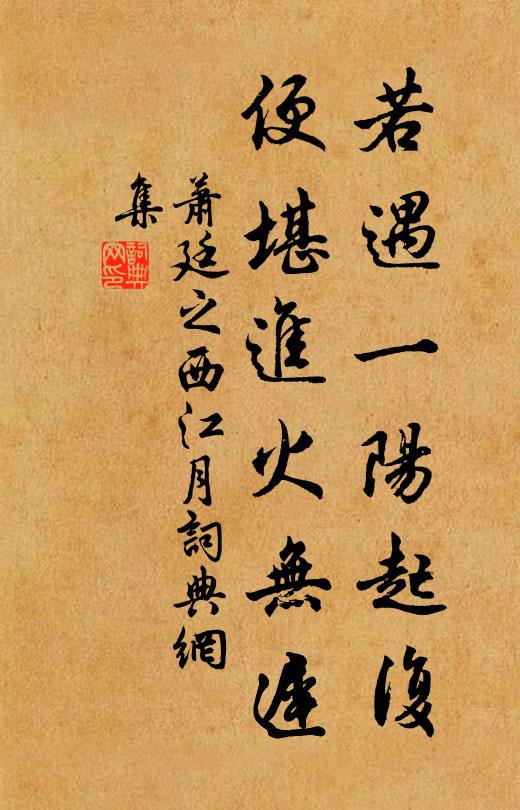 若遇一陽起復
便堪進火無遲
蕭廷之西江月詞典網
集
詞典
网印